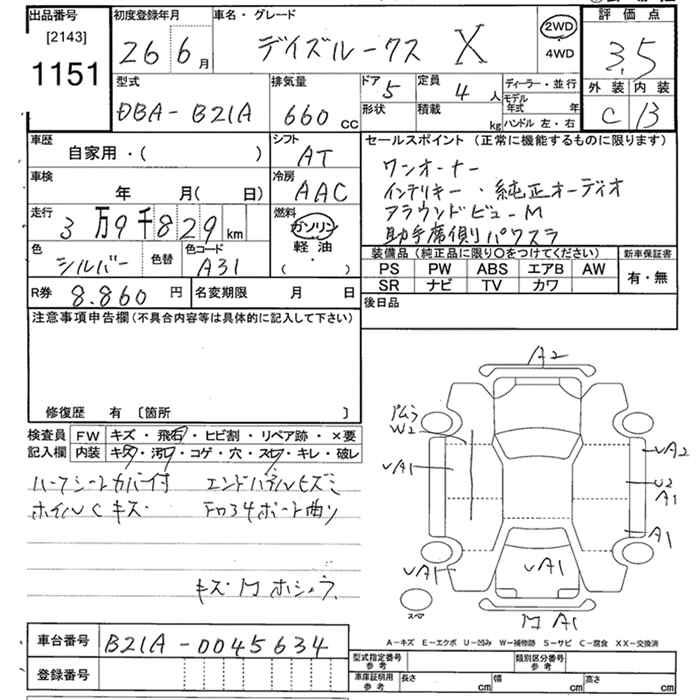 出品番号
[2143]
1151
初度登録年月
26 6月
車名・グレード
デイズルークス X
2WD
4WD
評価点
3.5
外装 内装
C B
型式
DBA-B21A
排気量
660cc
ドア 5
定員 4人
形状
積載 kg
ディーラー・並行
モデル年式 年
ハンドル 左・右
車歴
自家用・( )
シフト
AT
車検
年 月( 日)
冷房
AAC
走行
3万9千829km
燃料
ガソリン
軽油
( ・ )
色
シルバー
色替
色コード
A31
R券 8.860円
名変期限 月 日
セールスポイント(正常に機能するものに限ります)
ワンオーナー
インテリキー・純正オーディオ
アラウンドビューM
助手席側パワスラ
装備品(純正品に限り○をつけてください)
PS PW ABS エアB AW
SR ナビ TV カワ
新車保証書
有・無
後日品
注意事項申告欄(不具合内容等は具体的に記入して下さい)
修復歴 有 [箇所 ]
検査員記入欄
FW キズ・飛石・ヒビ割・リペア跡・×要
内装 キズ・汚レ・コゲ・穴・スレ・キレ・破レ
ハーフシートカバー付 エンドパネルヒズミ
ホイルCキズ
キズ
A2
W2
UA1
UA2
U2
A1
A1
UA1
UA1
A1
スペア
A-キズ E-エクボ U-凹み W-補修跡 S-サビ C-腐食 XX-交換済
車台番号 B21A-0045634
登録番号
型式指定番号
参考
類別区分番号
参考
車庫証明用
参考
長さ cm
幅 cm
高さ cm